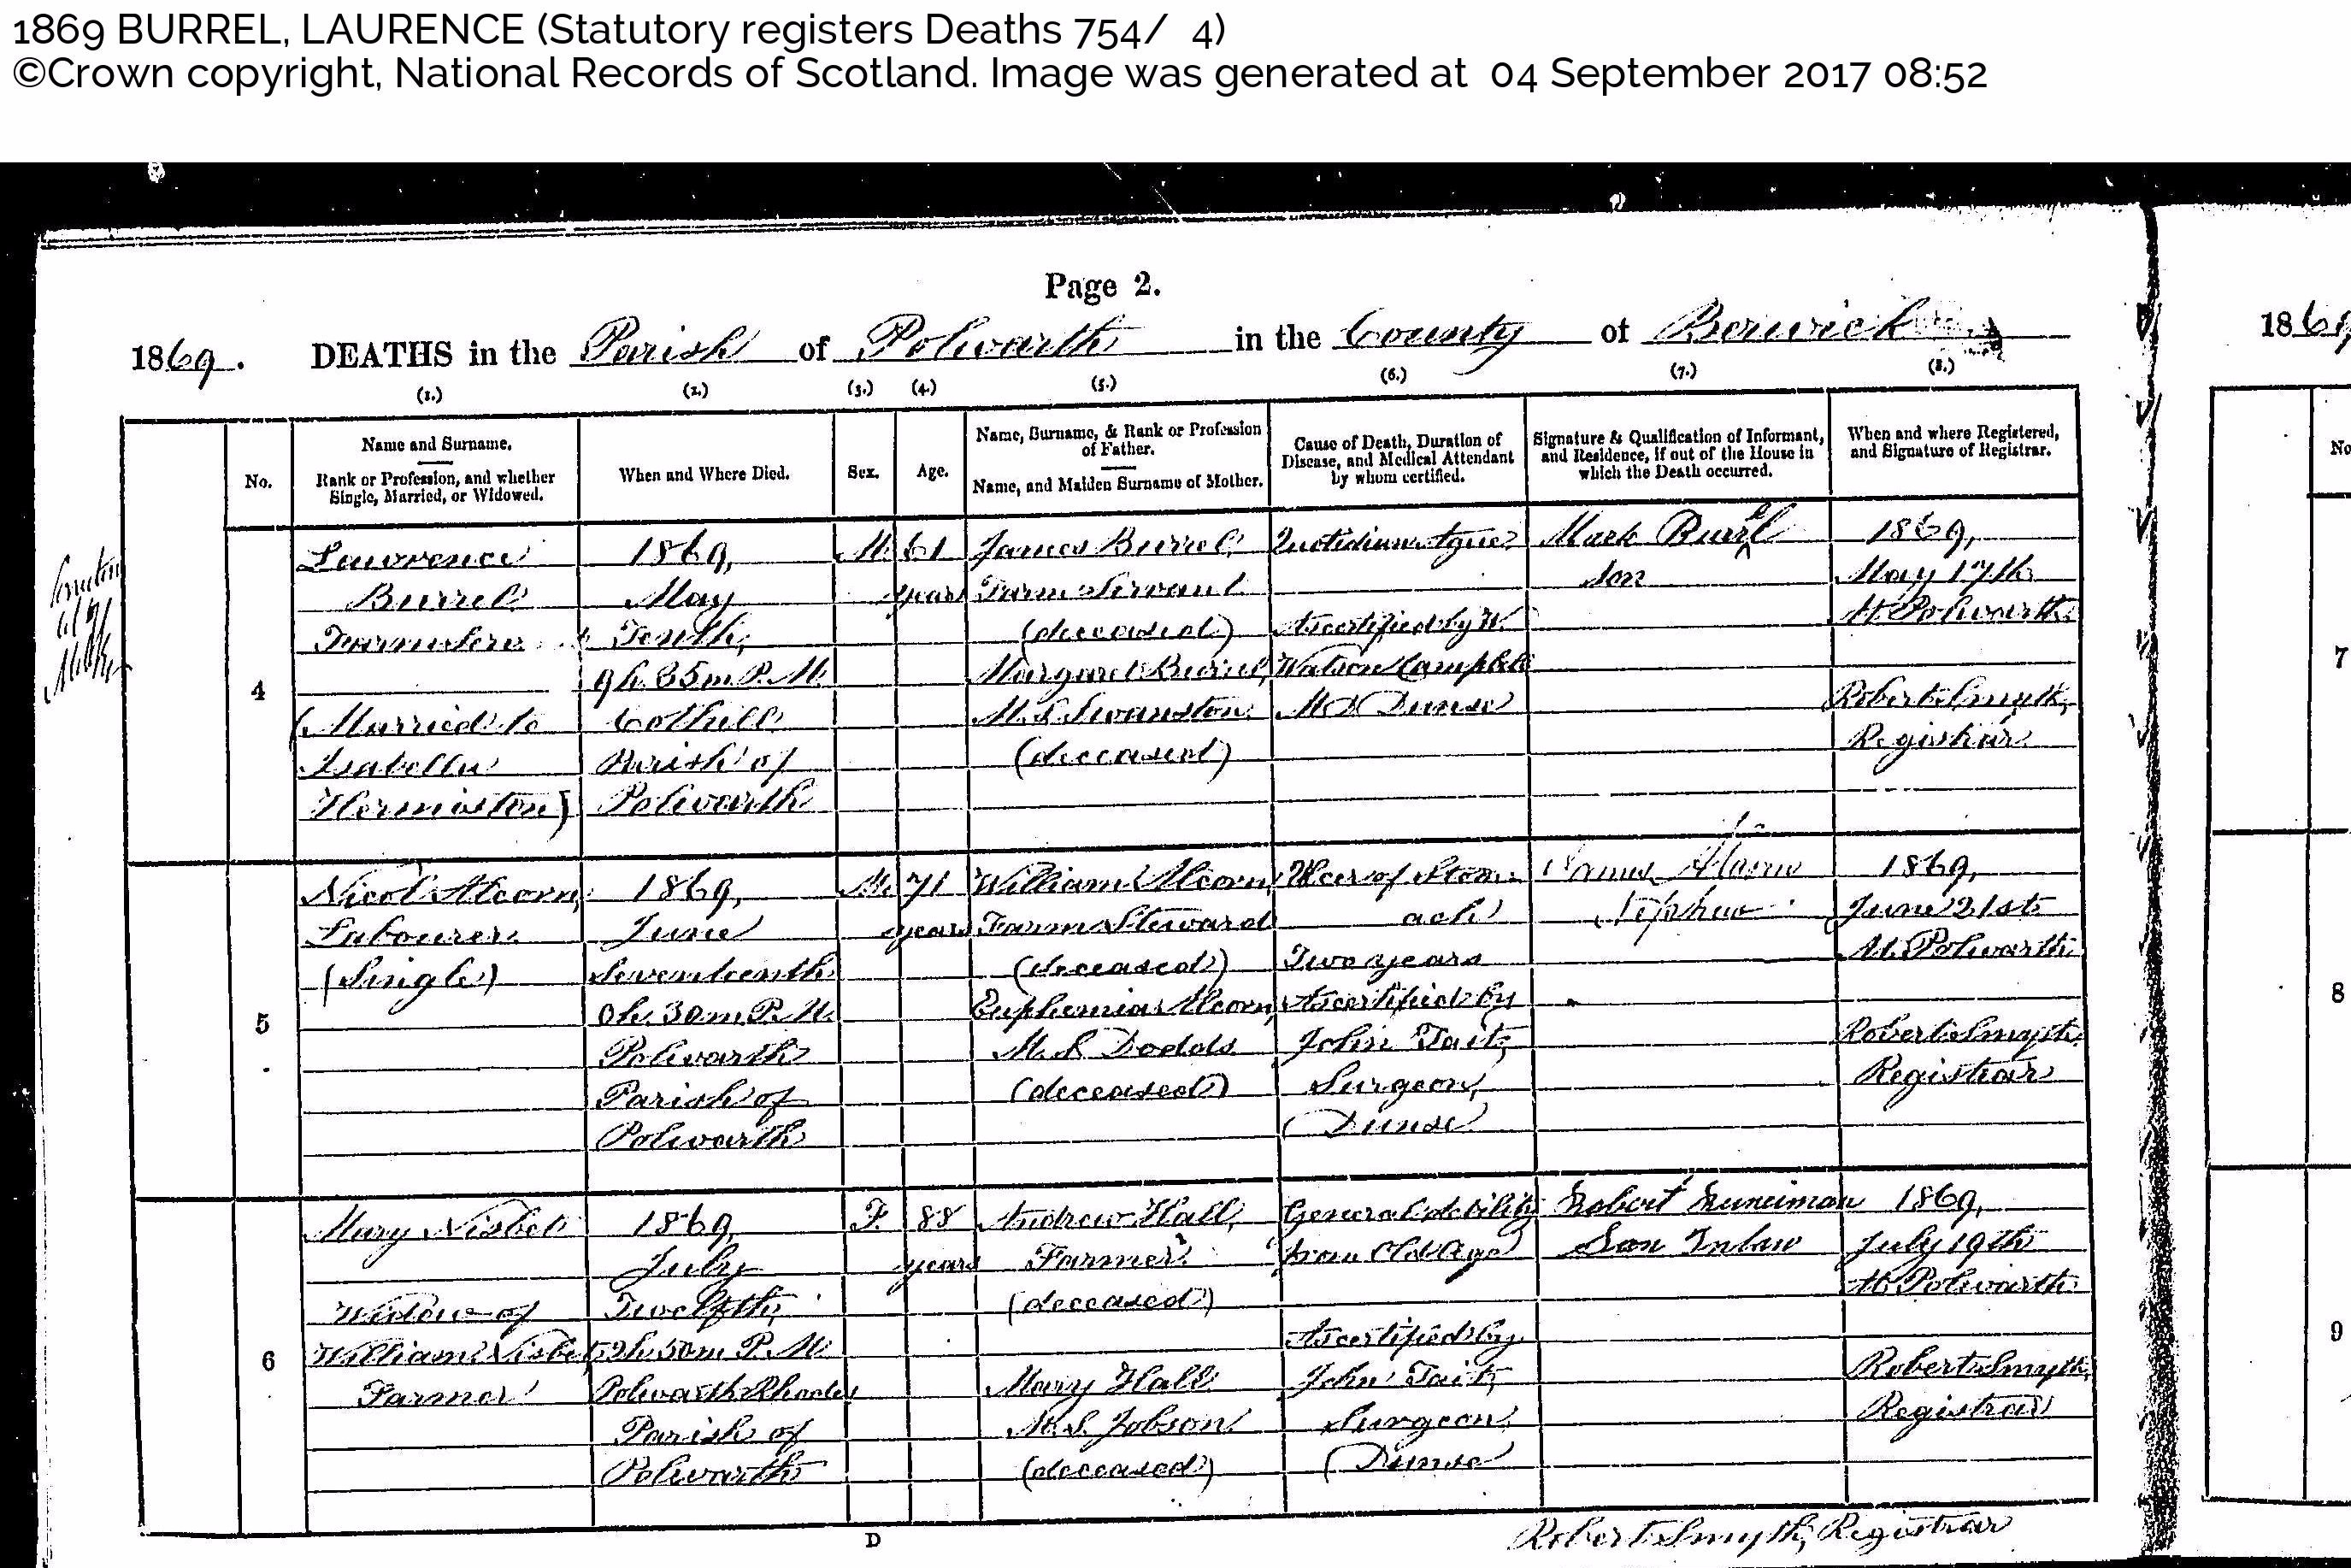 1869 BURREL, LAURENCE (Statutory registers Deaths 754/ 4)
©Crown copyright, National Records of Scotland. Image was generated at 04 September 2017 08:52
Page 2.
1869. DEATHS in the Parish of Polwarth in the County of Berwick
186
(1.) (2.) (3.) (4.) (5.) (6.) (7.) (8.)
No.
Name and Surname.
Rank or Profession, and whether
Single, Married, or Widowed.
When and Where Died.
Sex.
Age.
Name, Surname, & Rank or Profession
of Father.
Name, and Maiden Surname of Mother.
Cause of Death, Duration of
Disease, and Medical Attendant
by whom certified.
Signature & Qualification of Informant,
and Residence, if out of the House in
which the Death occurred.
When and where Registered,
and Signature of Registrar.
No
4
Lawrence
Burrel
Farm Serv
(Married to
Isabella
Hermiston)
1869,
May
Tenth,
9h. 35m. P.M.
Cothill
Parish of
Polwarth
M.
61
years
James Burrel,
Farm Servant
(deceased)
Margaret Burrel,
M.S. Swanston
(deceased)
Quotidian Ague
As certified by W.
Watson Campbell
M D Dunse
Mark Burrel
Son
1869,
May 17th
At Polwarth
Robert Smyth,
Registrar
7
5
Nicol Alcorn,
Labourer
(Single)
1869,
June
Seventeenth
0h. 30m. P.M.
Polwarth
Parish of
Polwarth
M.
71
years
William Alcorn,
Farm Steward
(deceased)
Euphemia Alcorn,
M.S. Dodds
(deceased)
Ulcer of Stom
ach
Two years
As certified by
John Tait,
Surgeon,
Dunse
Nephew
1869,
June 21st
At Polwarth
Robert Smyth,
Registrar
8
6
Mary Nisbet
Widow of
William Nisbet,
Farmer
1869,
July
Twelfth,
2h. 50m. P.M.
Polwarth Rhodes
Parish of
Polwarth
F.
88
years
Andrew Hall,
Farmer
(deceased)
Mary Hall
M.S. Jobson
(deceased)
General debility
from Old Age
As certified by
John Tait,
Surgeon,
Dunse
Robert Runciman
Son Inlaw
1869,
July 19th
At Polwarth
Robert Smyth,
Registrar
9
D
Robert Smyth, Registrar